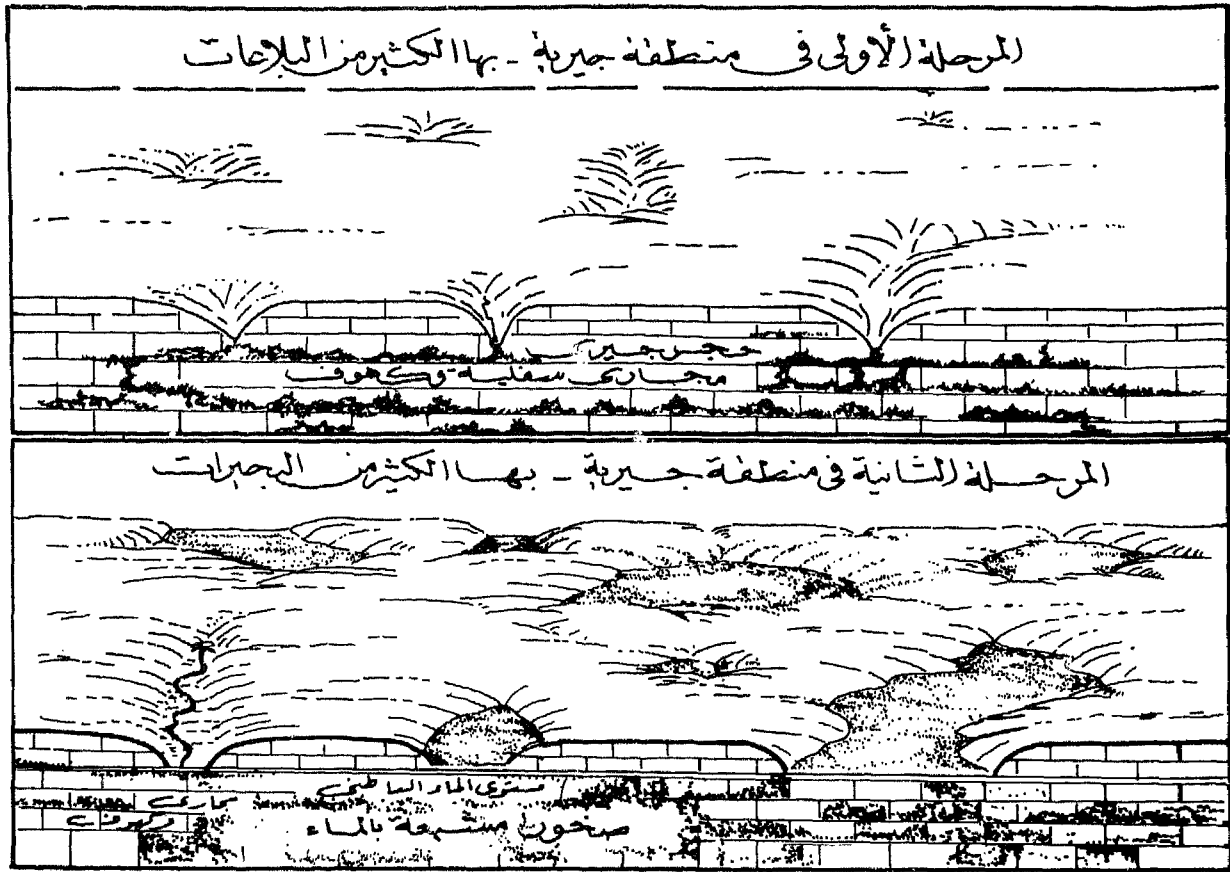 المرحلة الأولى في منطقة جيرية - بها الكثير من البلاعات
حجر جيري
مجاري سفلية وكهوف
المرحلة الثانية في منطقة جيرية - بها الكثير من البحيرات
مستوى الماء الباطني
مجاري
وكهوف
صخور مشبعة بالماء